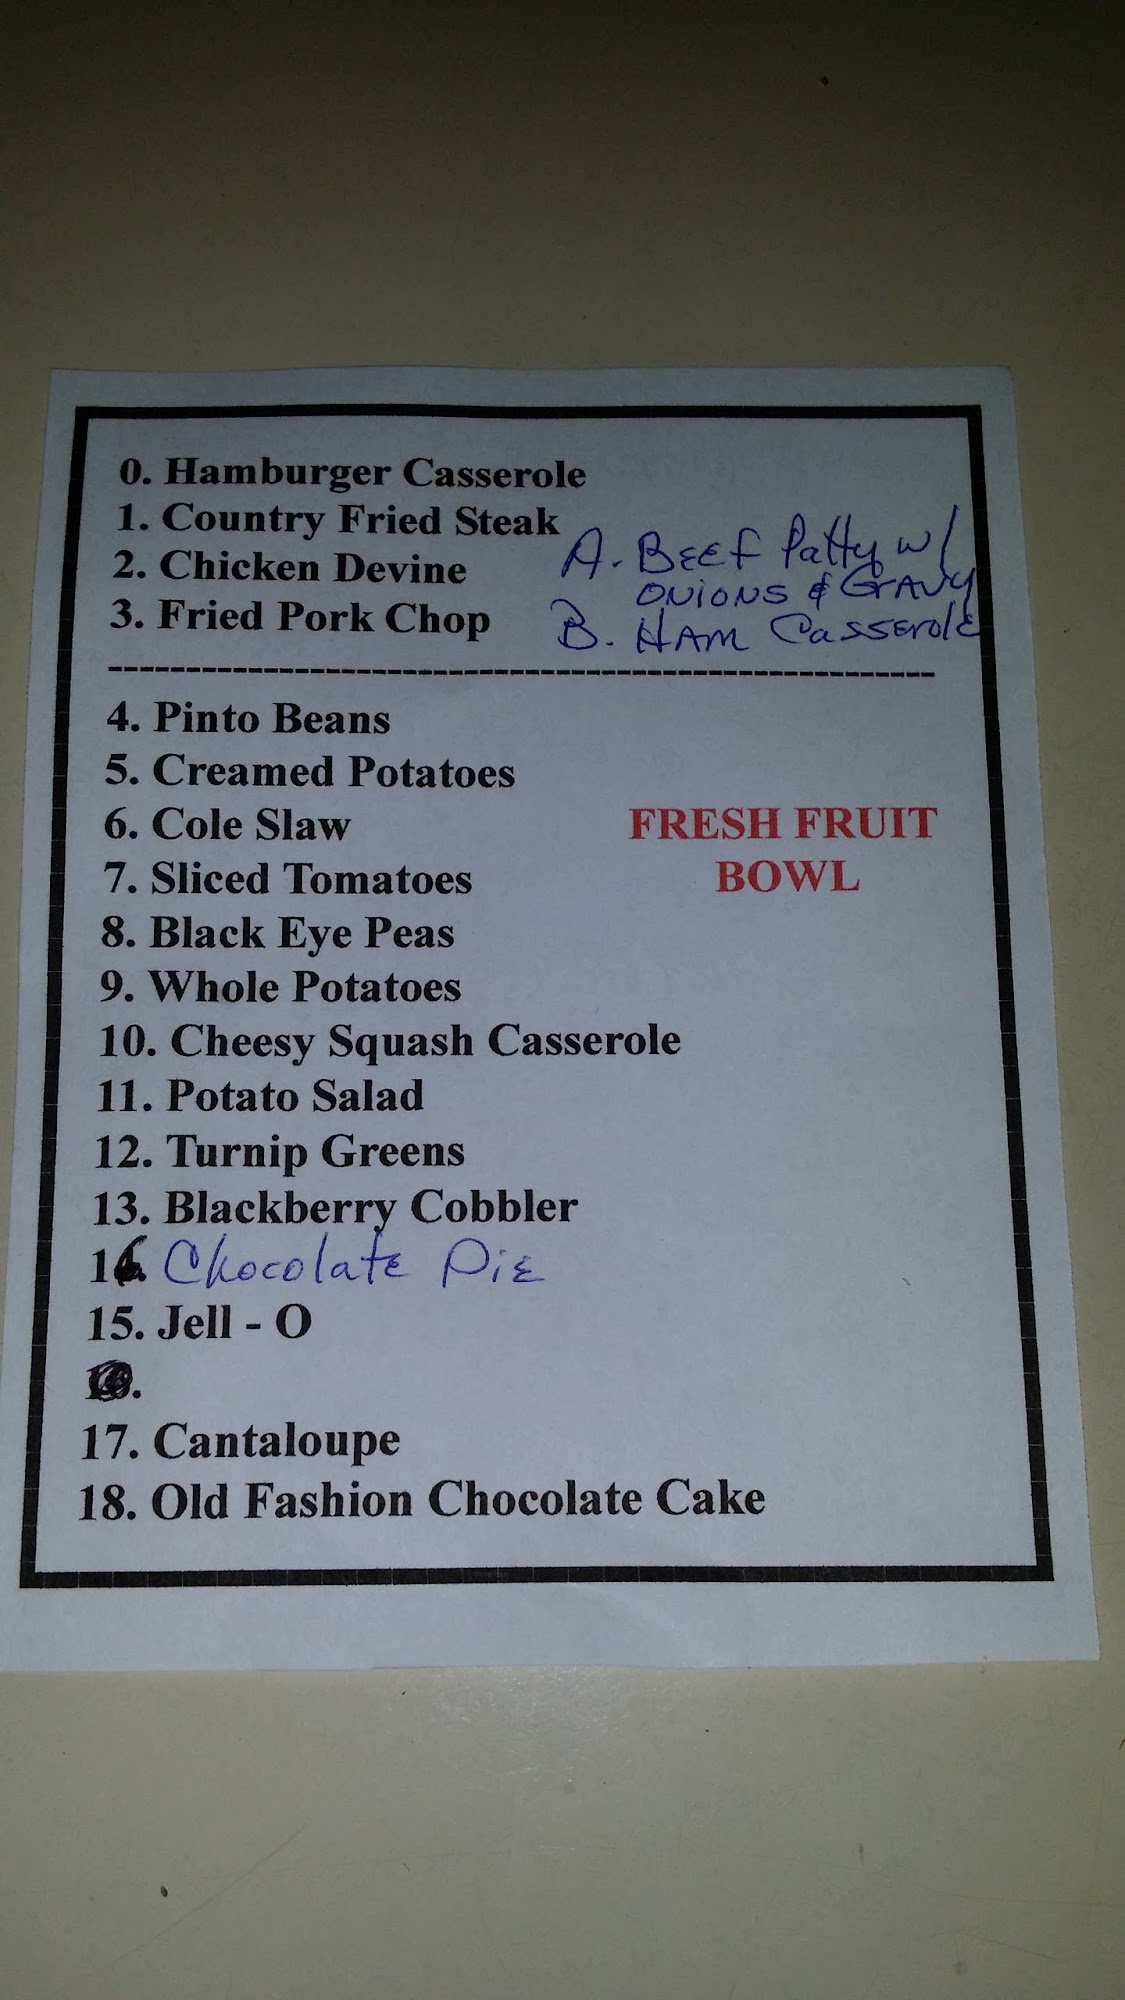 0. Hamburger Casserole
1. Country Fried Steak
2. Chicken Devine
3. Fried Pork Chop
A. Beef Patty w/
Onions & Gravy
B. Ham Casserole
--------------------------------------------------------
4. Pinto Beans
5. Creamed Potatoes
6. Cole Slaw
7. Sliced Tomatoes
FRESH FRUIT
BOWL
8. Black Eye Peas
9. Whole Potatoes
10. Cheesy Squash Casserole
11. Potato Salad
12. Turnip Greens
13. Blackberry Cobbler
Chocolate Pie
15. Jell - O
17. Cantaloupe
18. Old Fashion Chocolate Cake